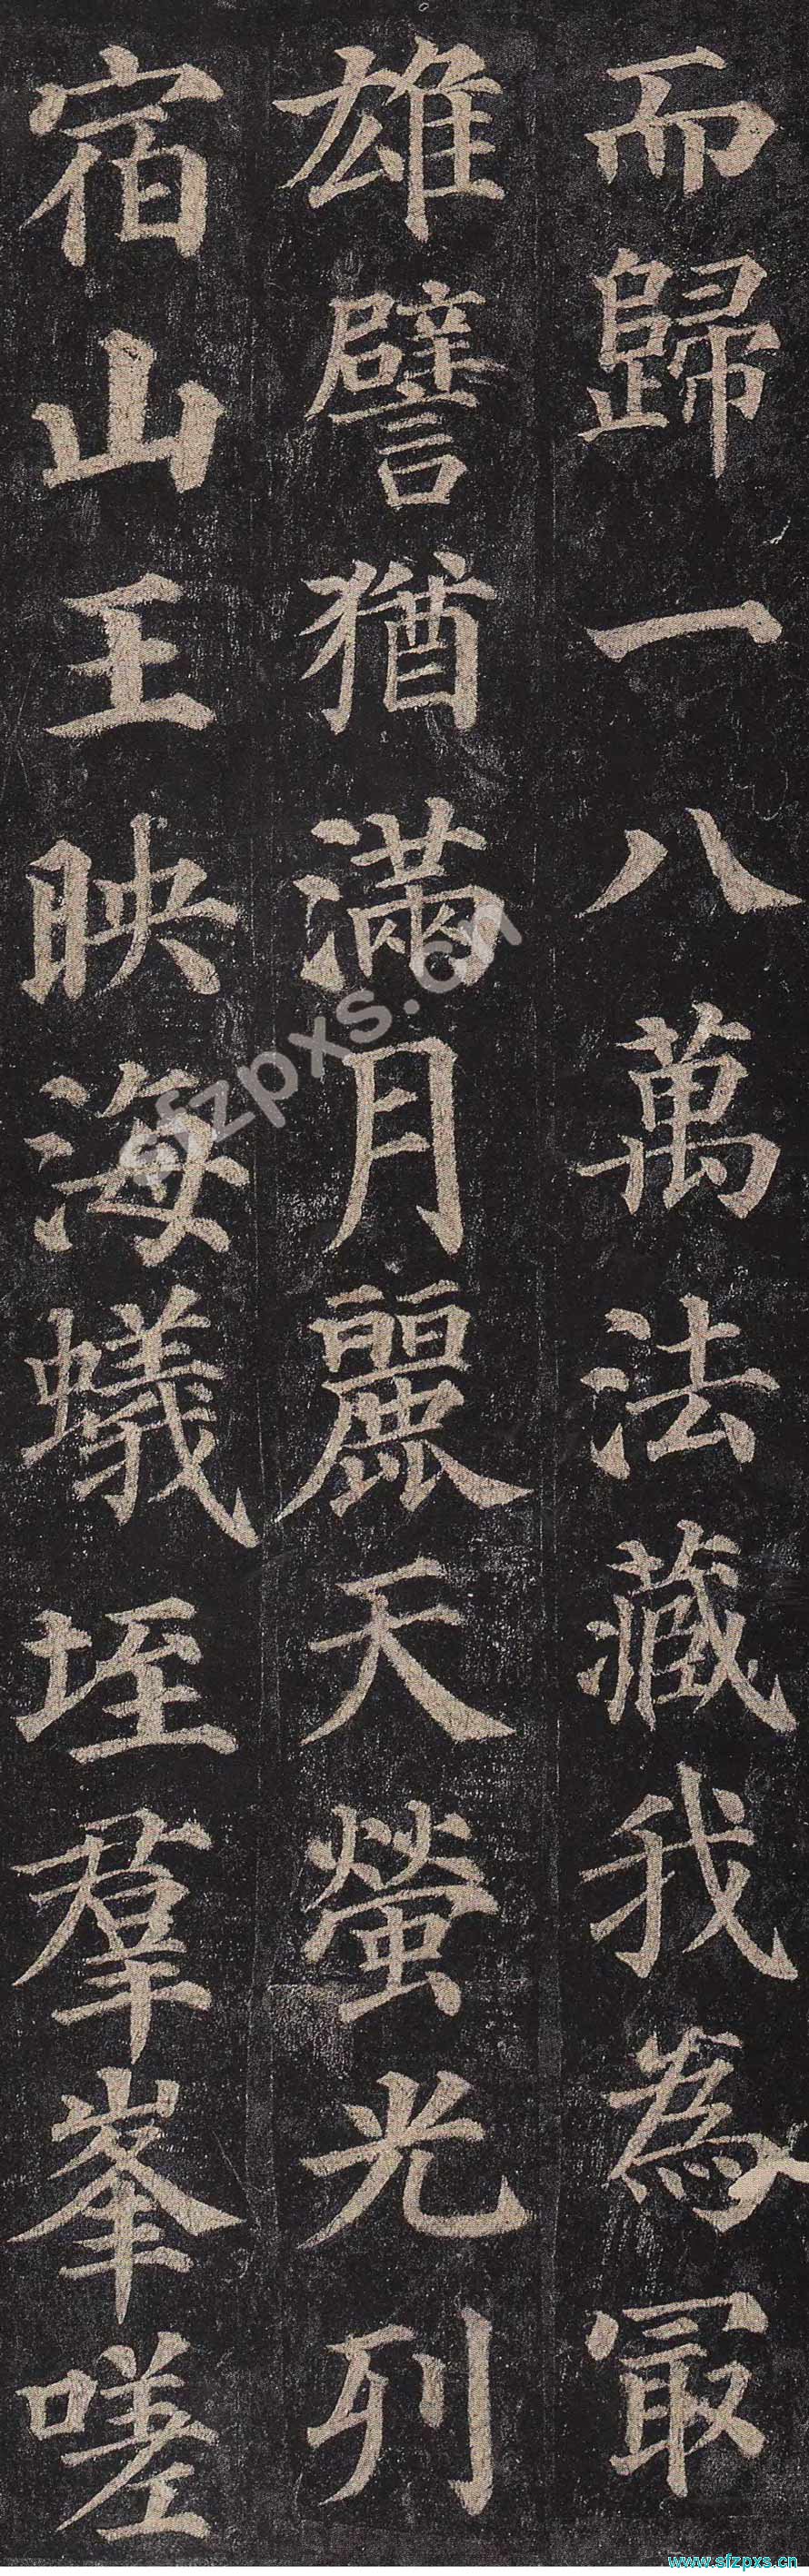 而歸一八萬法藏我為冣
雄譬猶滿月麗天螢光列
宿山王映海蟻垤羣峯嗟
sfzpxs.cn
www.sfzpxs.cn